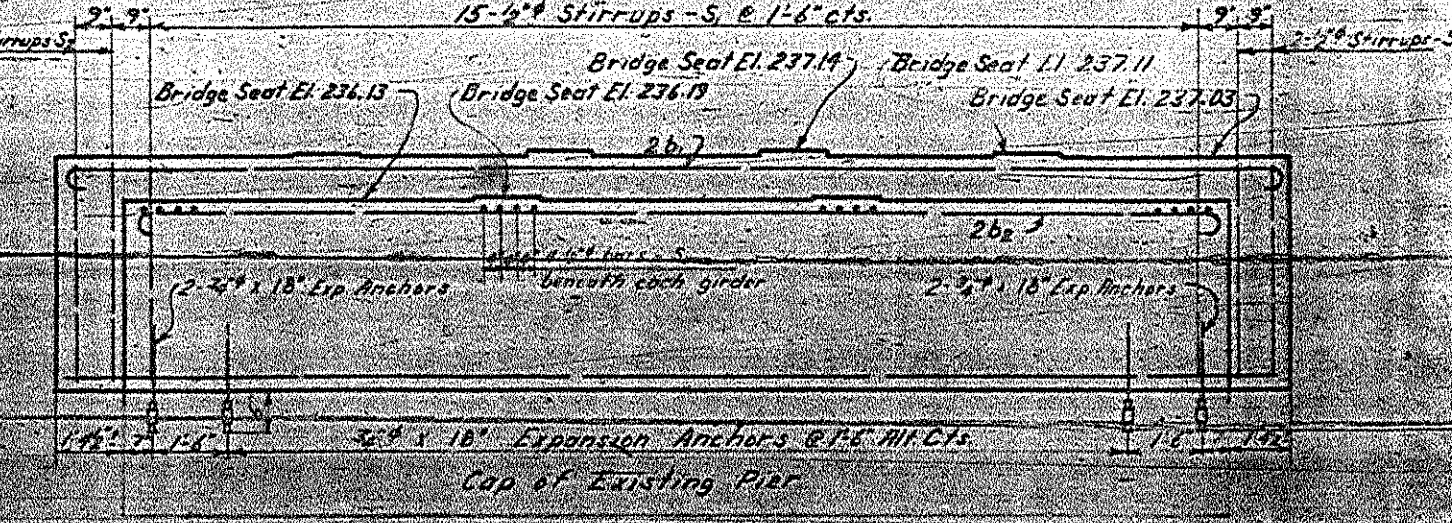 9" 9"
15-½"ᵠ Stirrups - S, @ 1'-6" cts.
9" 9"
Stirrups S₂
2-½"ᵠ Stirrups - S
Bridge Seat El. 237.14
Bridge Seat El. 237.11
Bridge Seat El. 236.13
Bridge Seat El. 236.19
Bridge Seat El. 237.03
2b₁
2b₂
bars - S
beneath each girder
2-¾"ᵠ x 18" Exp. Anchors
2-¾"ᵠ x 18" Exp. Anchors
6"
1'-4½" 7" 1'-6"
¾"ᵠ x 18" Expansion Anchors @ 1'-6" Alt. Cts.
1'-6" 7" 1'-4½"
Cap of Existing Pier